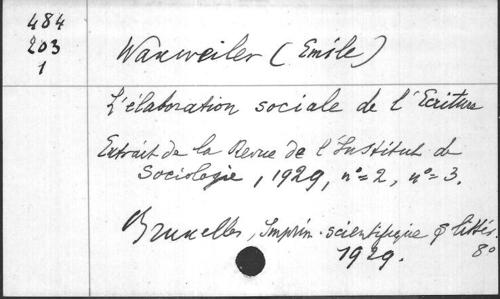 484
203
1
Waxweiler (Emile)
L'élaboration sociale de l'Ecriture
Extrait de la Revue de l'Institut de
Sociologie, 1929, n°=2, n°=3.
Bruxelles, Imprim. scientifique & littér.
1929. 8°